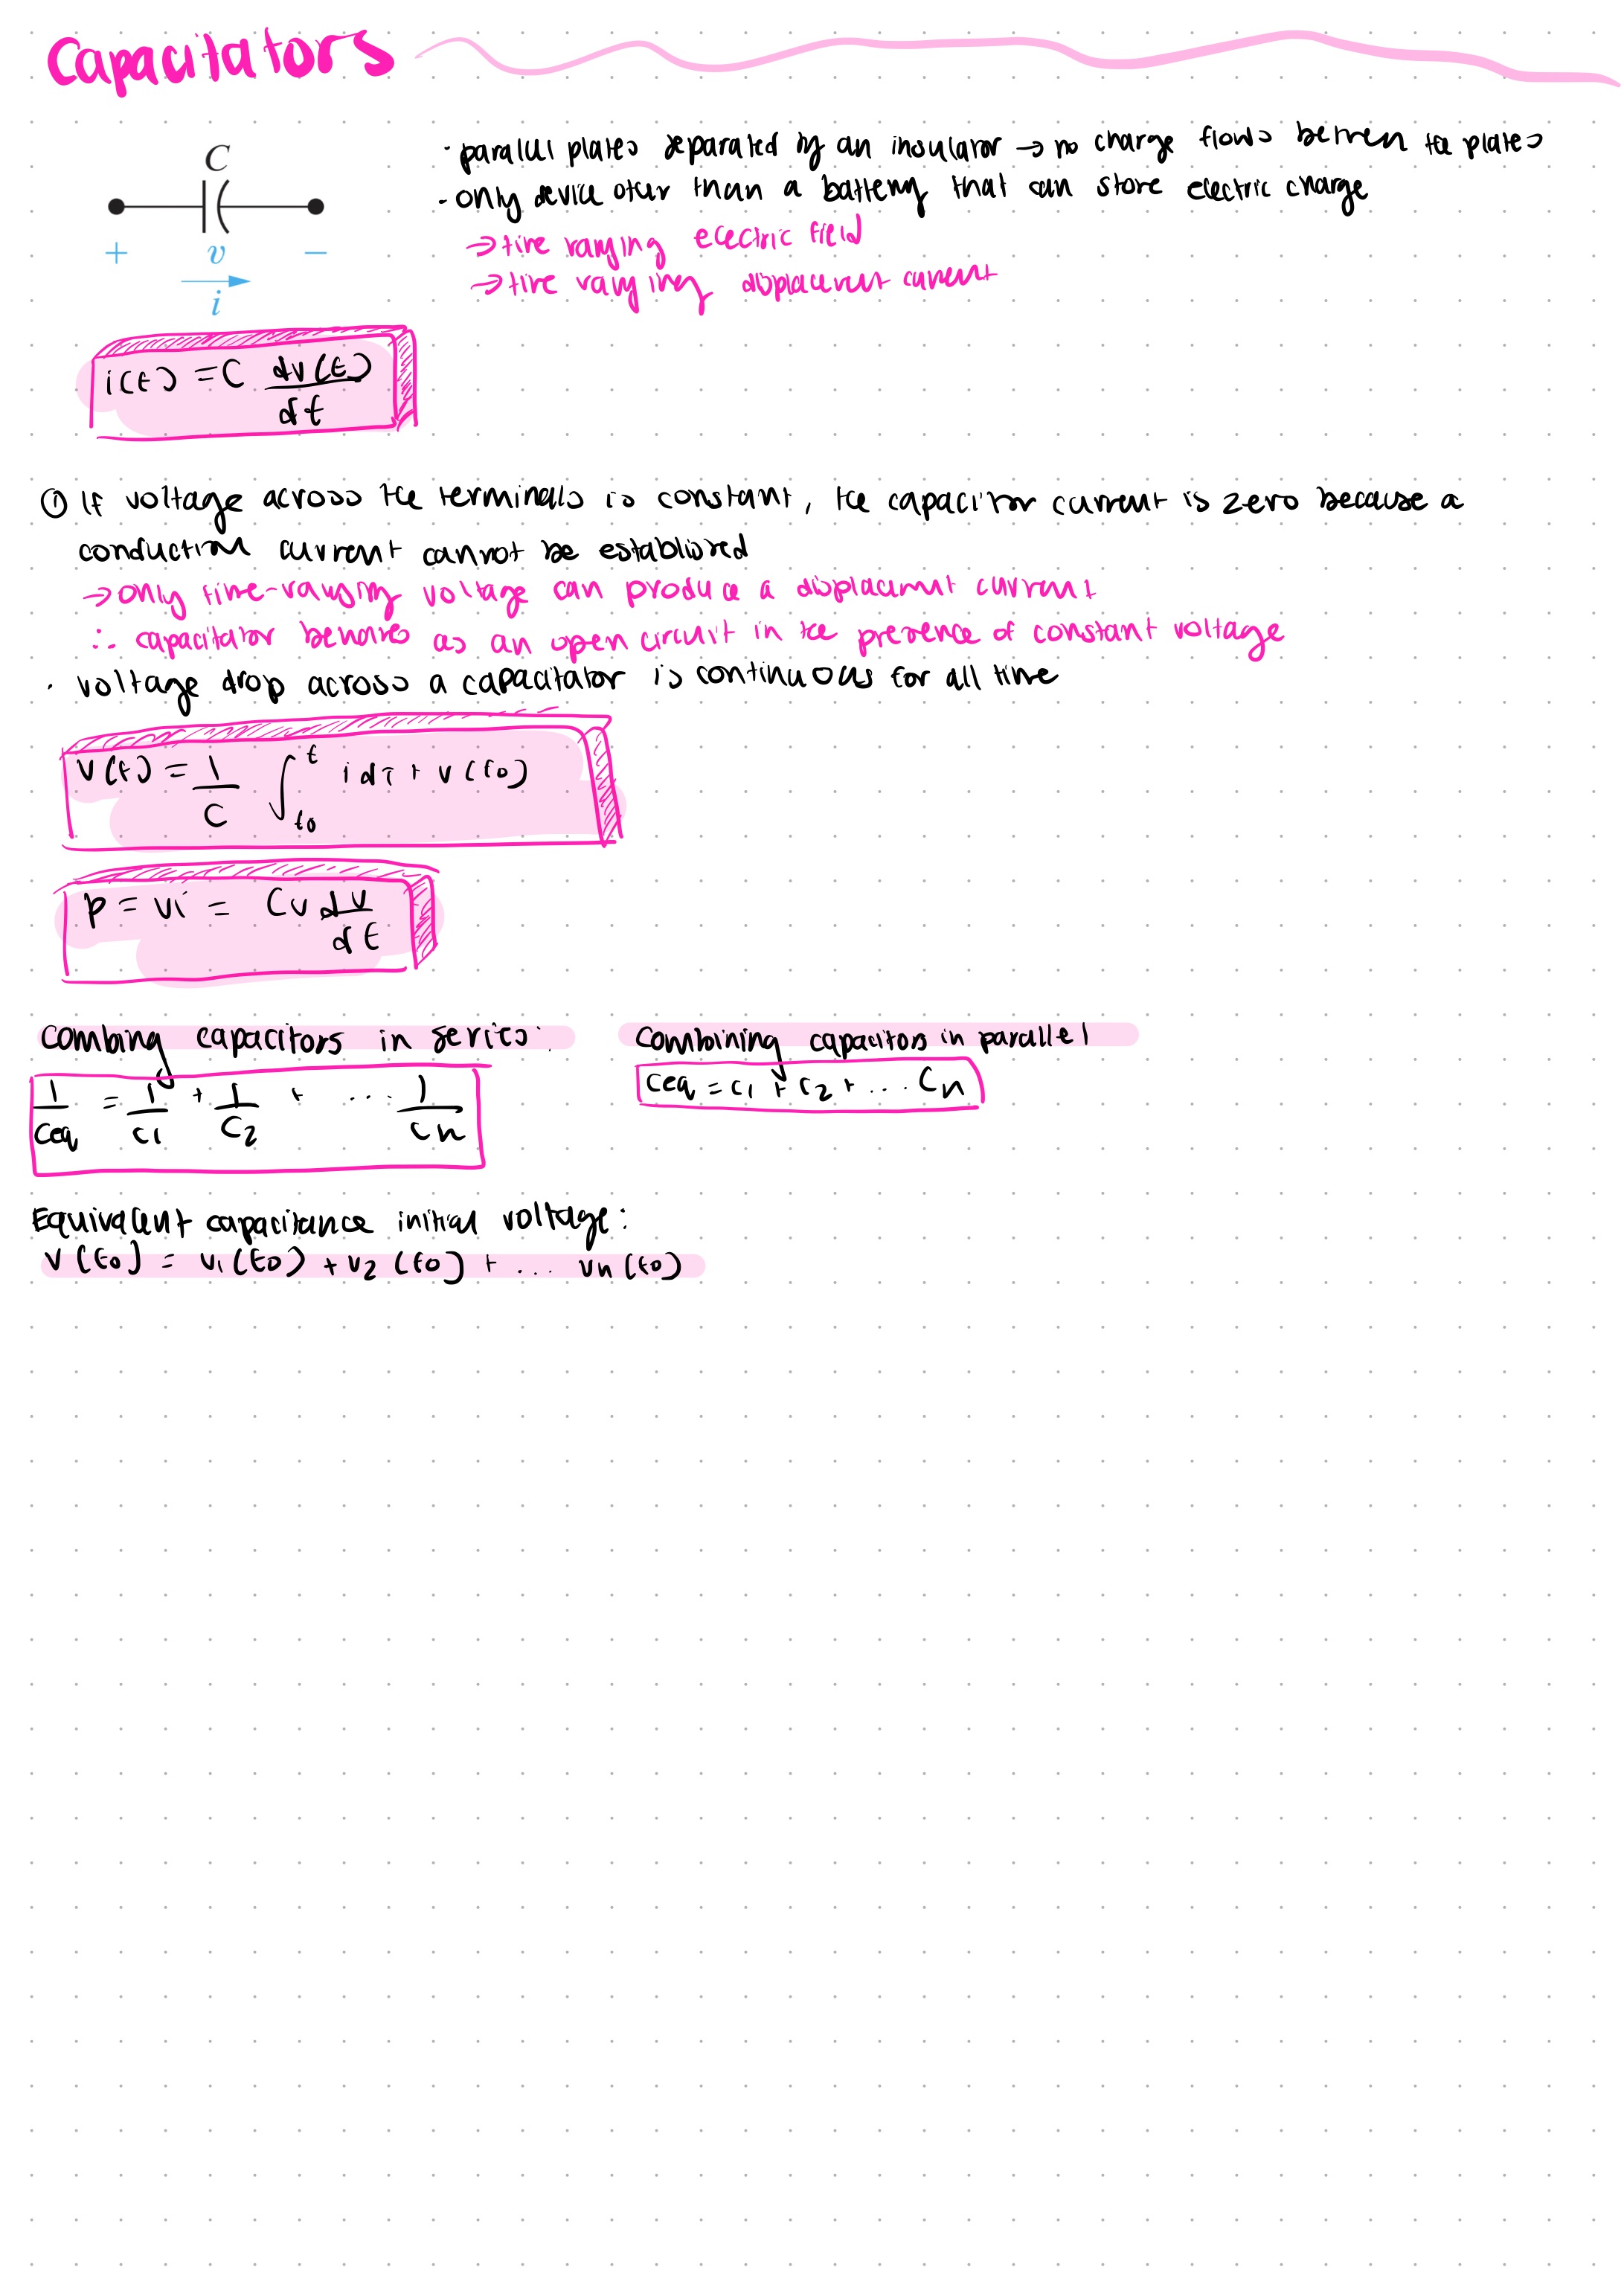 Capacitators
C
+ v −
i
· parallel plates separated by an insulator → no charge flows between the plates
· only device other than a battery that can store electric charge
→ time varying electric field
→ time varying displacement current
i(t) = C dv(t)/dt
① If voltage across the terminals is constant, the capacitor current is zero because a
conduction current cannot be established
→ only time-varying voltage can produce a displacement current
∴ capacitator behaves as an open circuit in the presence of constant voltage
· voltage drop across a capacitator is continuous for all time
v(t) = 1/C ∫_{t0}^{t} i dτ + v(t0)
p = vi = Cv dv/dt
Combing capacitors in series:
1/Ceq = 1/C1 + 1/C2 + ... 1/Cn
Combining capacitors in parallel
Ceq = C1 + C2 + ... Cn
Equivalent capacitance initial voltage:
v(t0) = v1(t0) + v2(t0) + ... vn(t0)